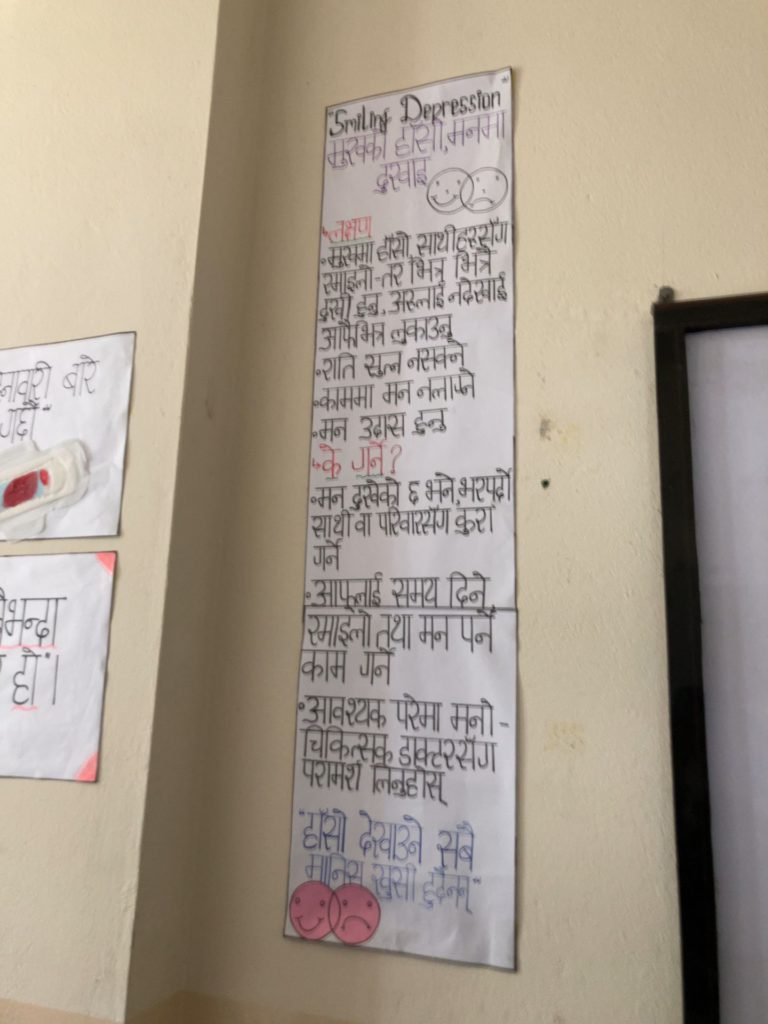 "Smiling Depression"
मुखको हाँसो, मनमा
दुखाइ
लक्षण
• मुखमा हाँसो, साथीहरूसँग
रमाइलो - तर भित्र भित्रै
दुखी हुनु, अरुलाई नदेखाई
आफैभित्र लुकाउनु
• राति सुत्न नसक्ने
• काममा मन नलाग्ने
• मन उदास हुनु
के गर्ने?
• मन दुखेको छ भने, भरपर्दो
साथी वा परिवारसँग कुरा
गर्ने
• आफूलाई समय दिने,
रमाइलो तथा मन पर्ने
काम गर्ने
• आवश्यक परेमा मनो-
चिकित्सक डाक्टरसँग
परामर्श लिनुहोस्
"हाँसो देखाउने सबै
मानिस खुसी हुँदैनन्"
बारे
गर्दौं"
हो"।